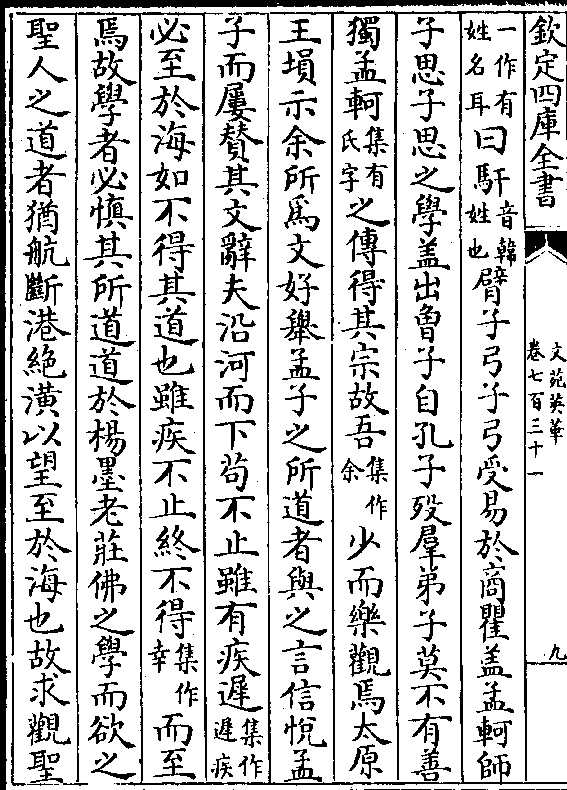 欽定四庫全書
文苑英華
卷七百三十一
九
一作有姓名耳曰馯音韓姓也臂子弓子弓受易於商瞿盖孟軻師
子思子思之學盖出魯子自孔子歿羣弟子莫不有善
獨孟軻集有氏字之傳得其宗故吾集作余少而樂觀焉太原
王塤示余所爲文好舉孟子之所道者與之言信悅孟
子而屢賛其文辭夫沿河而下茍不止雖有疾遲集作遲疾
必至於海如不得其道也雖疾不止終不得集作幸而至
焉故學者必慎其所道道於楊墨老莊佛之學而欲之
聖人之道者猶航斷港絶潢以望至於海也故求觀聖